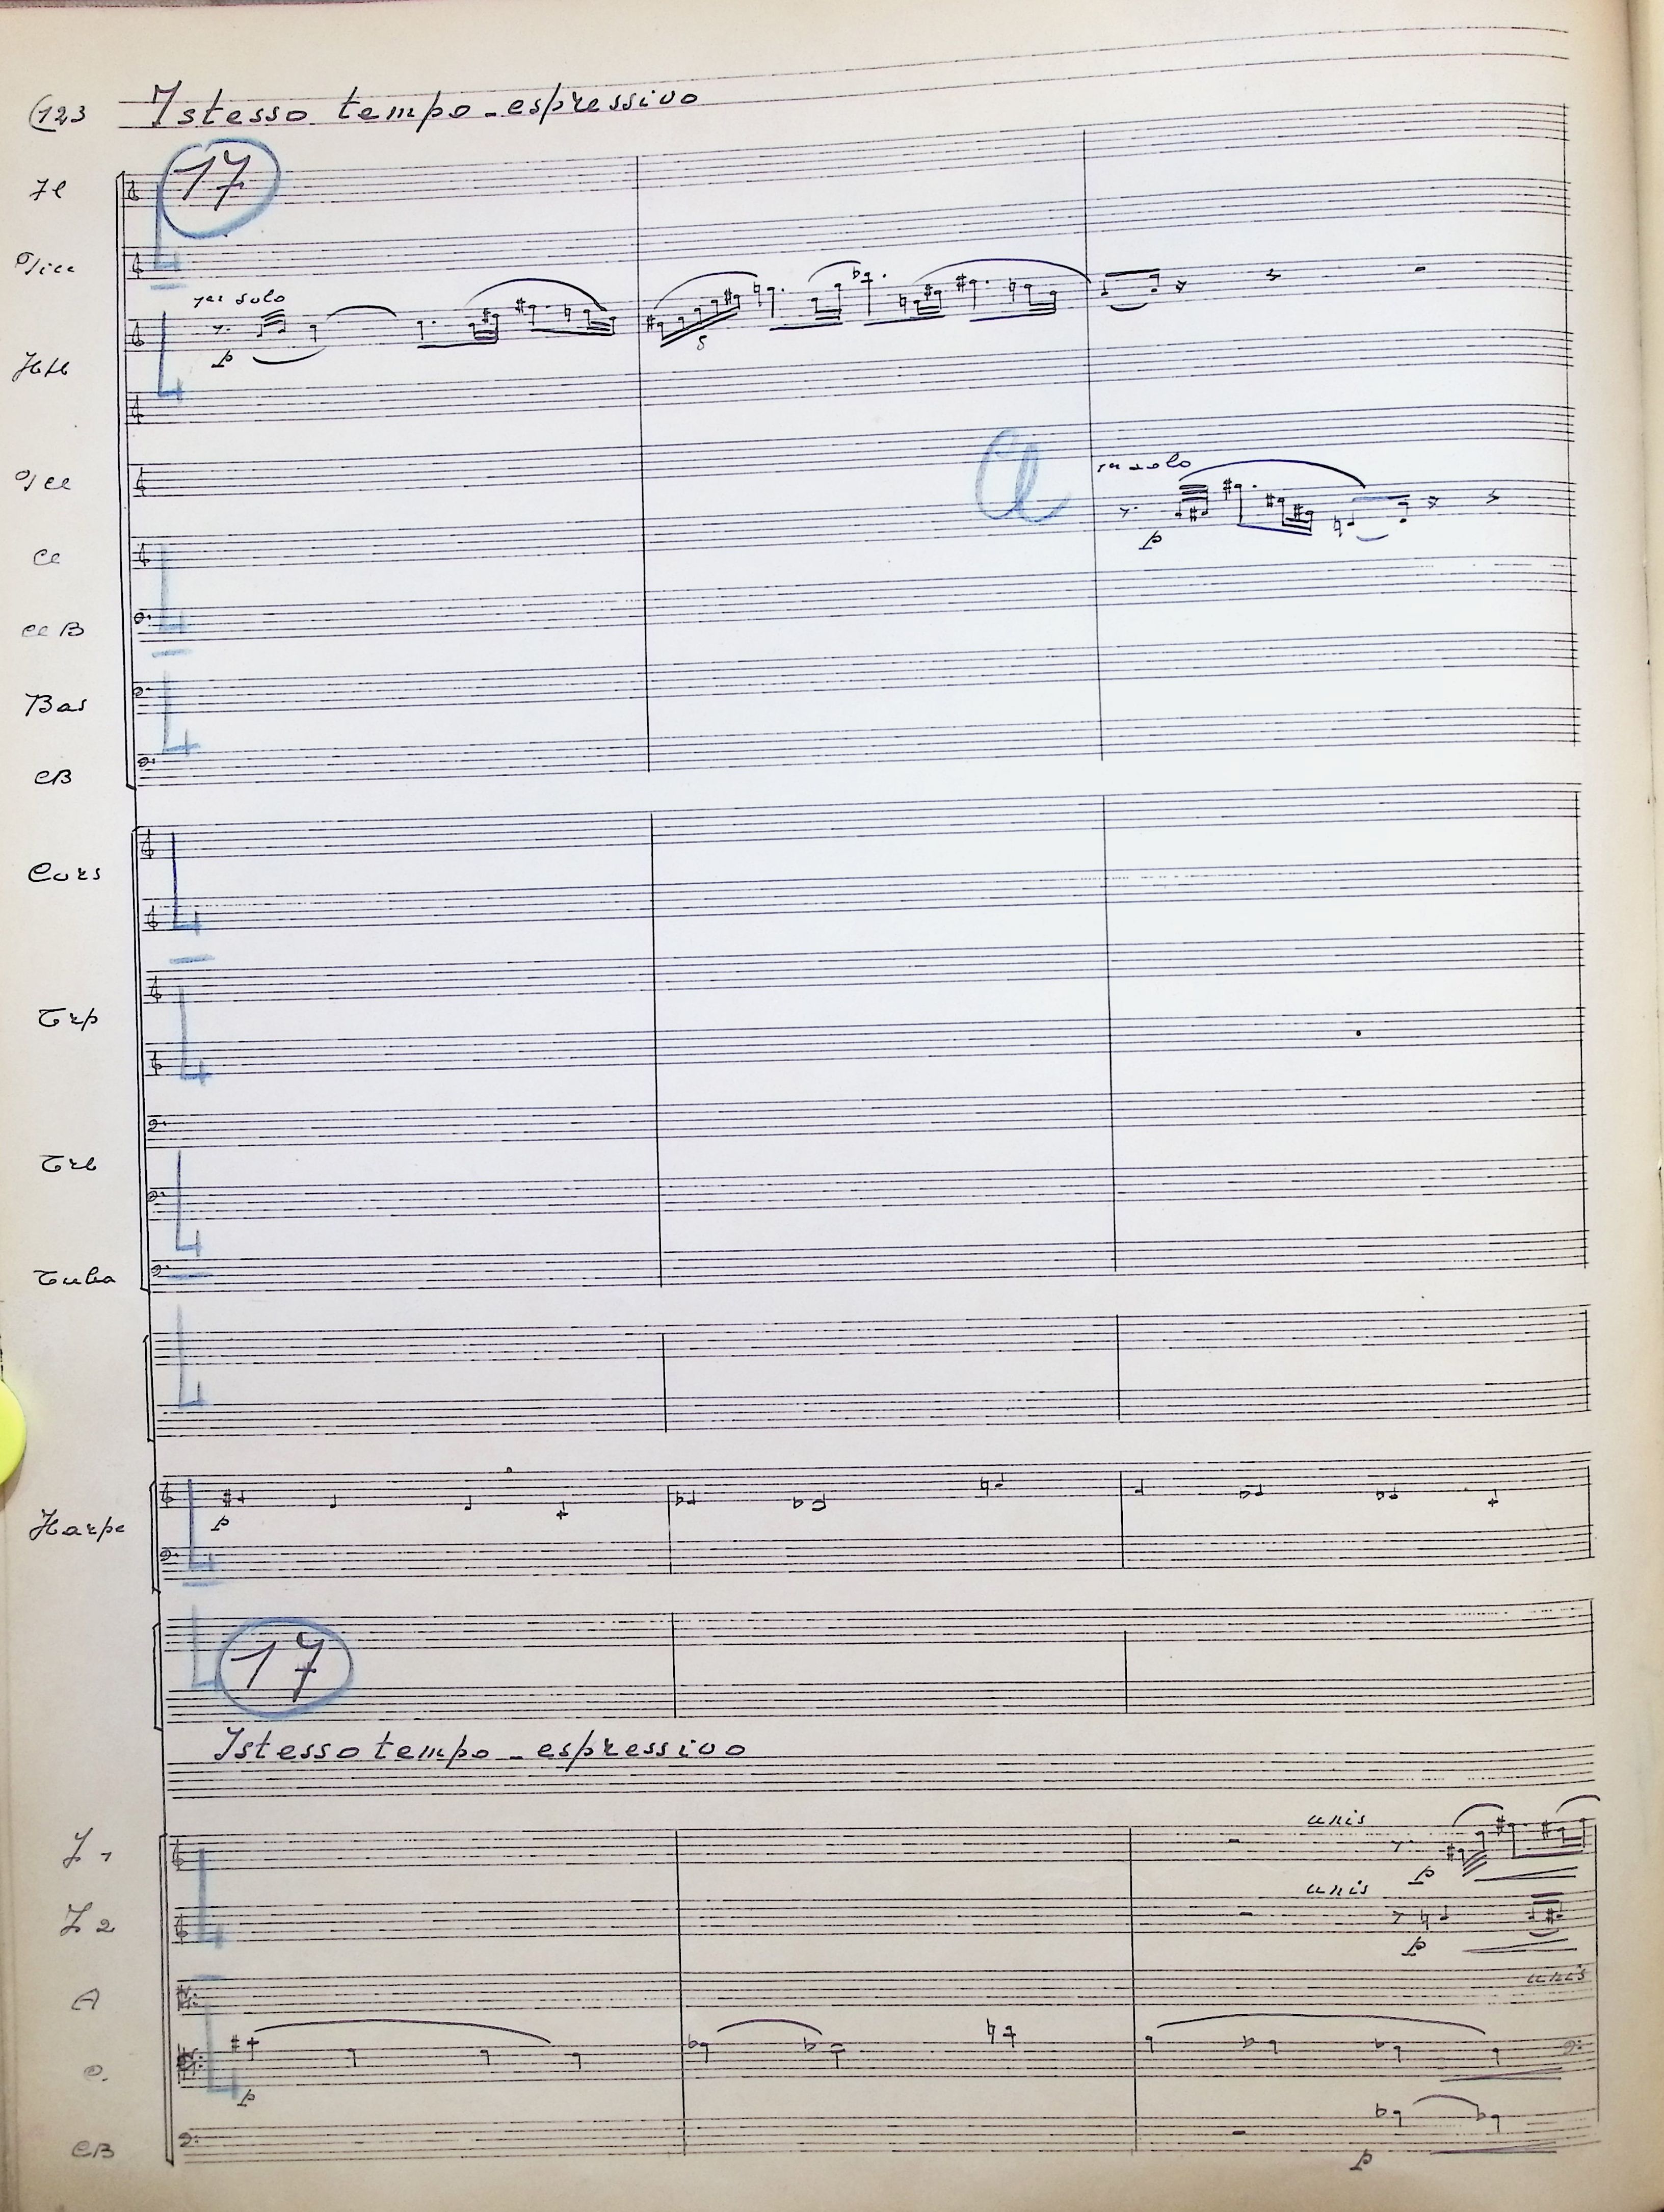 123
Istesso tempo - espressivo
17
Fl
Picc
1er solo
p
HH
5
Pcl
1er solo
Cl
p
ClB
Bas
CB
Cors
Trp
Trb
Tuba
Harpe
p
17
Istesso tempo - espressivo
unis
1
p
unis
2
p
unis
A
C.
p
CB
p